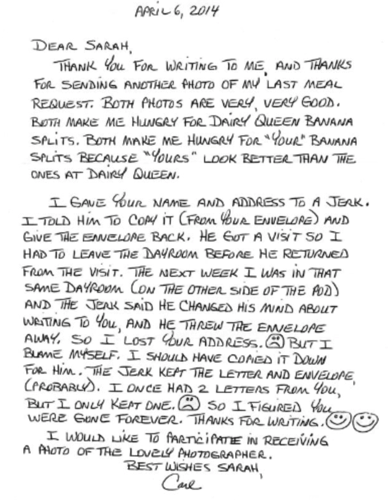 APRIL 6, 2014
DEAR SARAH,
THANK YOU FOR WRITING TO ME, AND THANKS
FOR SENDING ANOTHER PHOTO OF MY LAST MEAL
REQUEST. BOTH PHOTOS ARE VERY, VERY GOOD.
BOTH MAKE ME HUNGRY FOR DAIRY QUEEN BANANA
SPLITS. BOTH MAKE ME HUNGRY FOR "YOUR" BANANA
SPLITS BECAUSE "YOURS" LOOK BETTER THAN THE
ONES AT DAIRY QUEEN.
I GAVE YOUR NAME AND ADDRESS TO A JERK.
I TOLD HIM TO COPY IT (FROM YOUR ENVELOPE) AND
GIVE THE ENVELOPE BACK. HE GOT A VISIT SO I
HAD TO LEAVE THE DAYROOM BEFORE HE RETURNED
FROM THE VISIT. THE NEXT WEEK I WAS IN THAT
SAME DAYROOM (ON THE OTHER SIDE OF THE POD)
AND THE JERK SAID HE CHANGED HIS MIND ABOUT
WRITING TO YOU, AND HE THREW THE ENVELOPE
AWAY. SO I LOST YOUR ADDRESS. ☹ BUT I
BLAME MYSELF. I SHOULD HAVE COPIED IT DOWN
FOR HIM. THE JERK KEPT THE LETTER AND ENVELOPE
(PROBABLY). I ONCE HAD 2 LETTERS FROM YOU,
BUT I ONLY KEPT ONE. ☹ SO I FIGURED YOU
WERE GONE FOREVER. THANKS FOR WRITING. ☺ ☺
I WOULD LIKE TO PARTICIPATE IN RECEIVING
A PHOTO OF THE LOVELY PHOTOGRAPHER.
BEST WISHES SARAH,
Carl